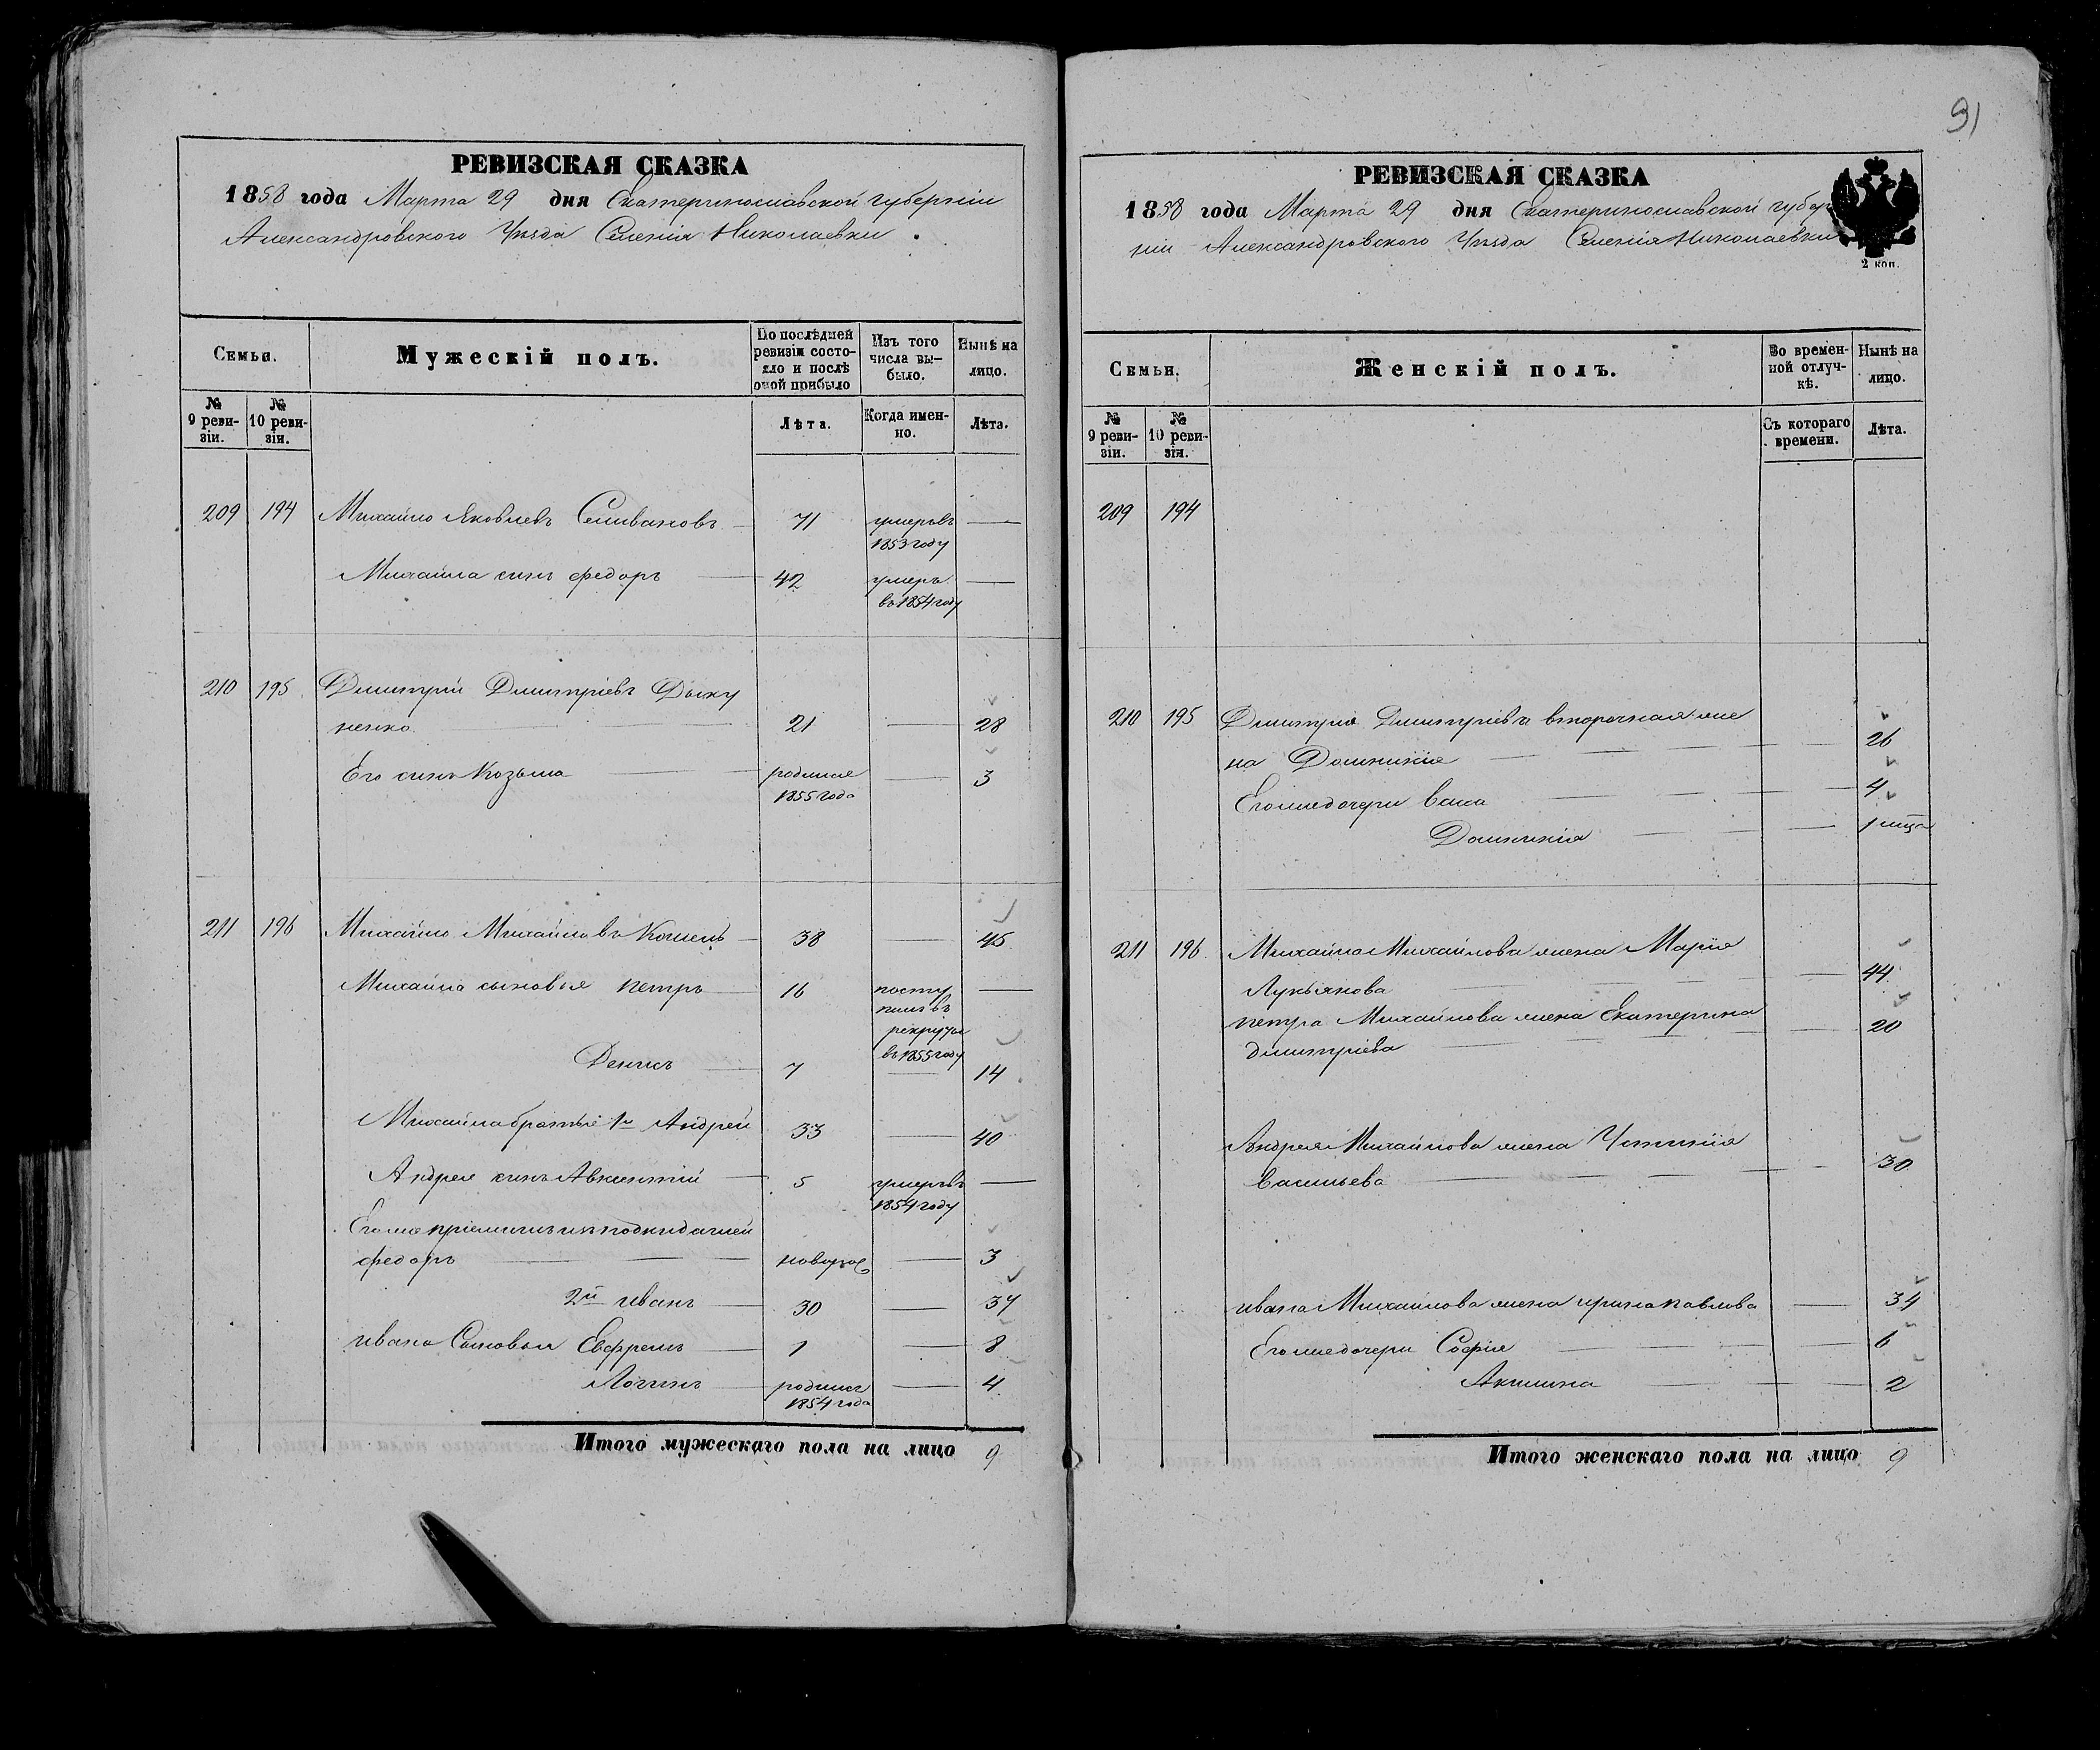 РЕВИЗСКАЯ СКАЗКА
1858 года Марта 29 дня Екатеринославской губерніи
Александровского Уѣзда Селенія Николаевки
Семьи.
Мужескій полъ.
По послѣдней ревизіи состояло и послѣ оной прибыло
Изъ того числа вы-было.
Нынѣ на лицо.
№ 9 реви-зіи.
№ 10 реви-зіи.
Лѣта.
Когда имен-но.
Лѣта.
209 194 Михайло Яковлевъ Селивановъ 71 умеръ въ —
1853 году
Михайла сынъ Федоръ 42 умеръ —
въ 1854 году
210 195 Дмитрій Дмитріевъ Дыку
ненко 21 — 28
Его сынъ Козьма родился — 3
1855 года
211 196 Михайло Михайловъ 38 — 45
Михайла сыновья Петръ 16 посту —
пилъ въ
рекруты
въ 1855 году
Денисъ 7 — 14
Михайла братья 1й Андрей 33 — 40
Андрея сынъ Авксентій 5 умеръ въ —
1854 году
Его же пріемышъ изъ подкидышей
Федоръ новорож — 3
2й Иванъ 30 — 37
Ивана Сыновья Евфремъ 1 — 8
Логинъ родился — 4
1854 года
Итого мужескаго пола на лицо 9
91
РЕВИЗСКАЯ СКАЗКА
1858 года Марта 29 дня Екатеринославской губер
ніи Александровского Уѣзда Селенія Николаевки
2 коп.
Семьи.
Женскій полъ.
Во времен-ной отлуч-кѣ.
Нынѣ на лицо.
№ 9 реви-зіи.
№ 10 реви-зія.
Съ котораго времени.
Лѣта.
209 194
210 195 Дмитрія Дмитріева вторачная же
на Домникія — 26
Его же дочери Васа — 4
Домникія — 1 мѣца
211 196 Михайла Михайлова жена Марія
Лукьянова — 44
Петра Михайлова жена Екатерина — 20
Дмитріева
Андрея Михайлова жена Устинія
Васильева — 30
Ивана Михайлова жена Ирина Павлова — 34
Его же дочери Софія — 6
Акилина — 2
Итого женскаго пола на лицо 9